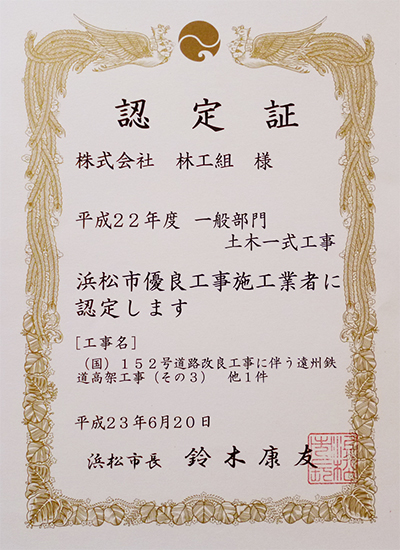 認定証
株式会社 林工組 様
平成22年度 一般部門
土木一式工事
浜松市優良工事施工業者に
認定します
[工事名]
(国)152号道路改良工事に伴う遠州鉄
道高架工事(その3) 他1件
平成23年6月20日
浜松市長 鈴木康友